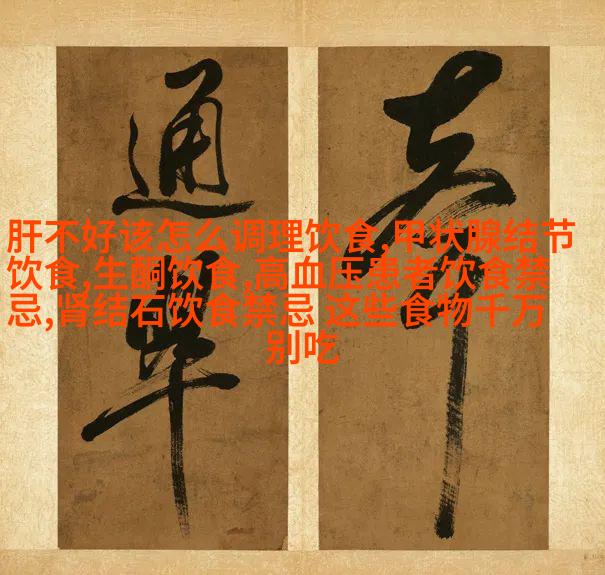 肝不好该怎么调理饮食,甲状腺结节
饮食,生酮饮食,高血压患者饮食禁
忌,肾结石饮食禁忌 这些食物千万
别吃
通